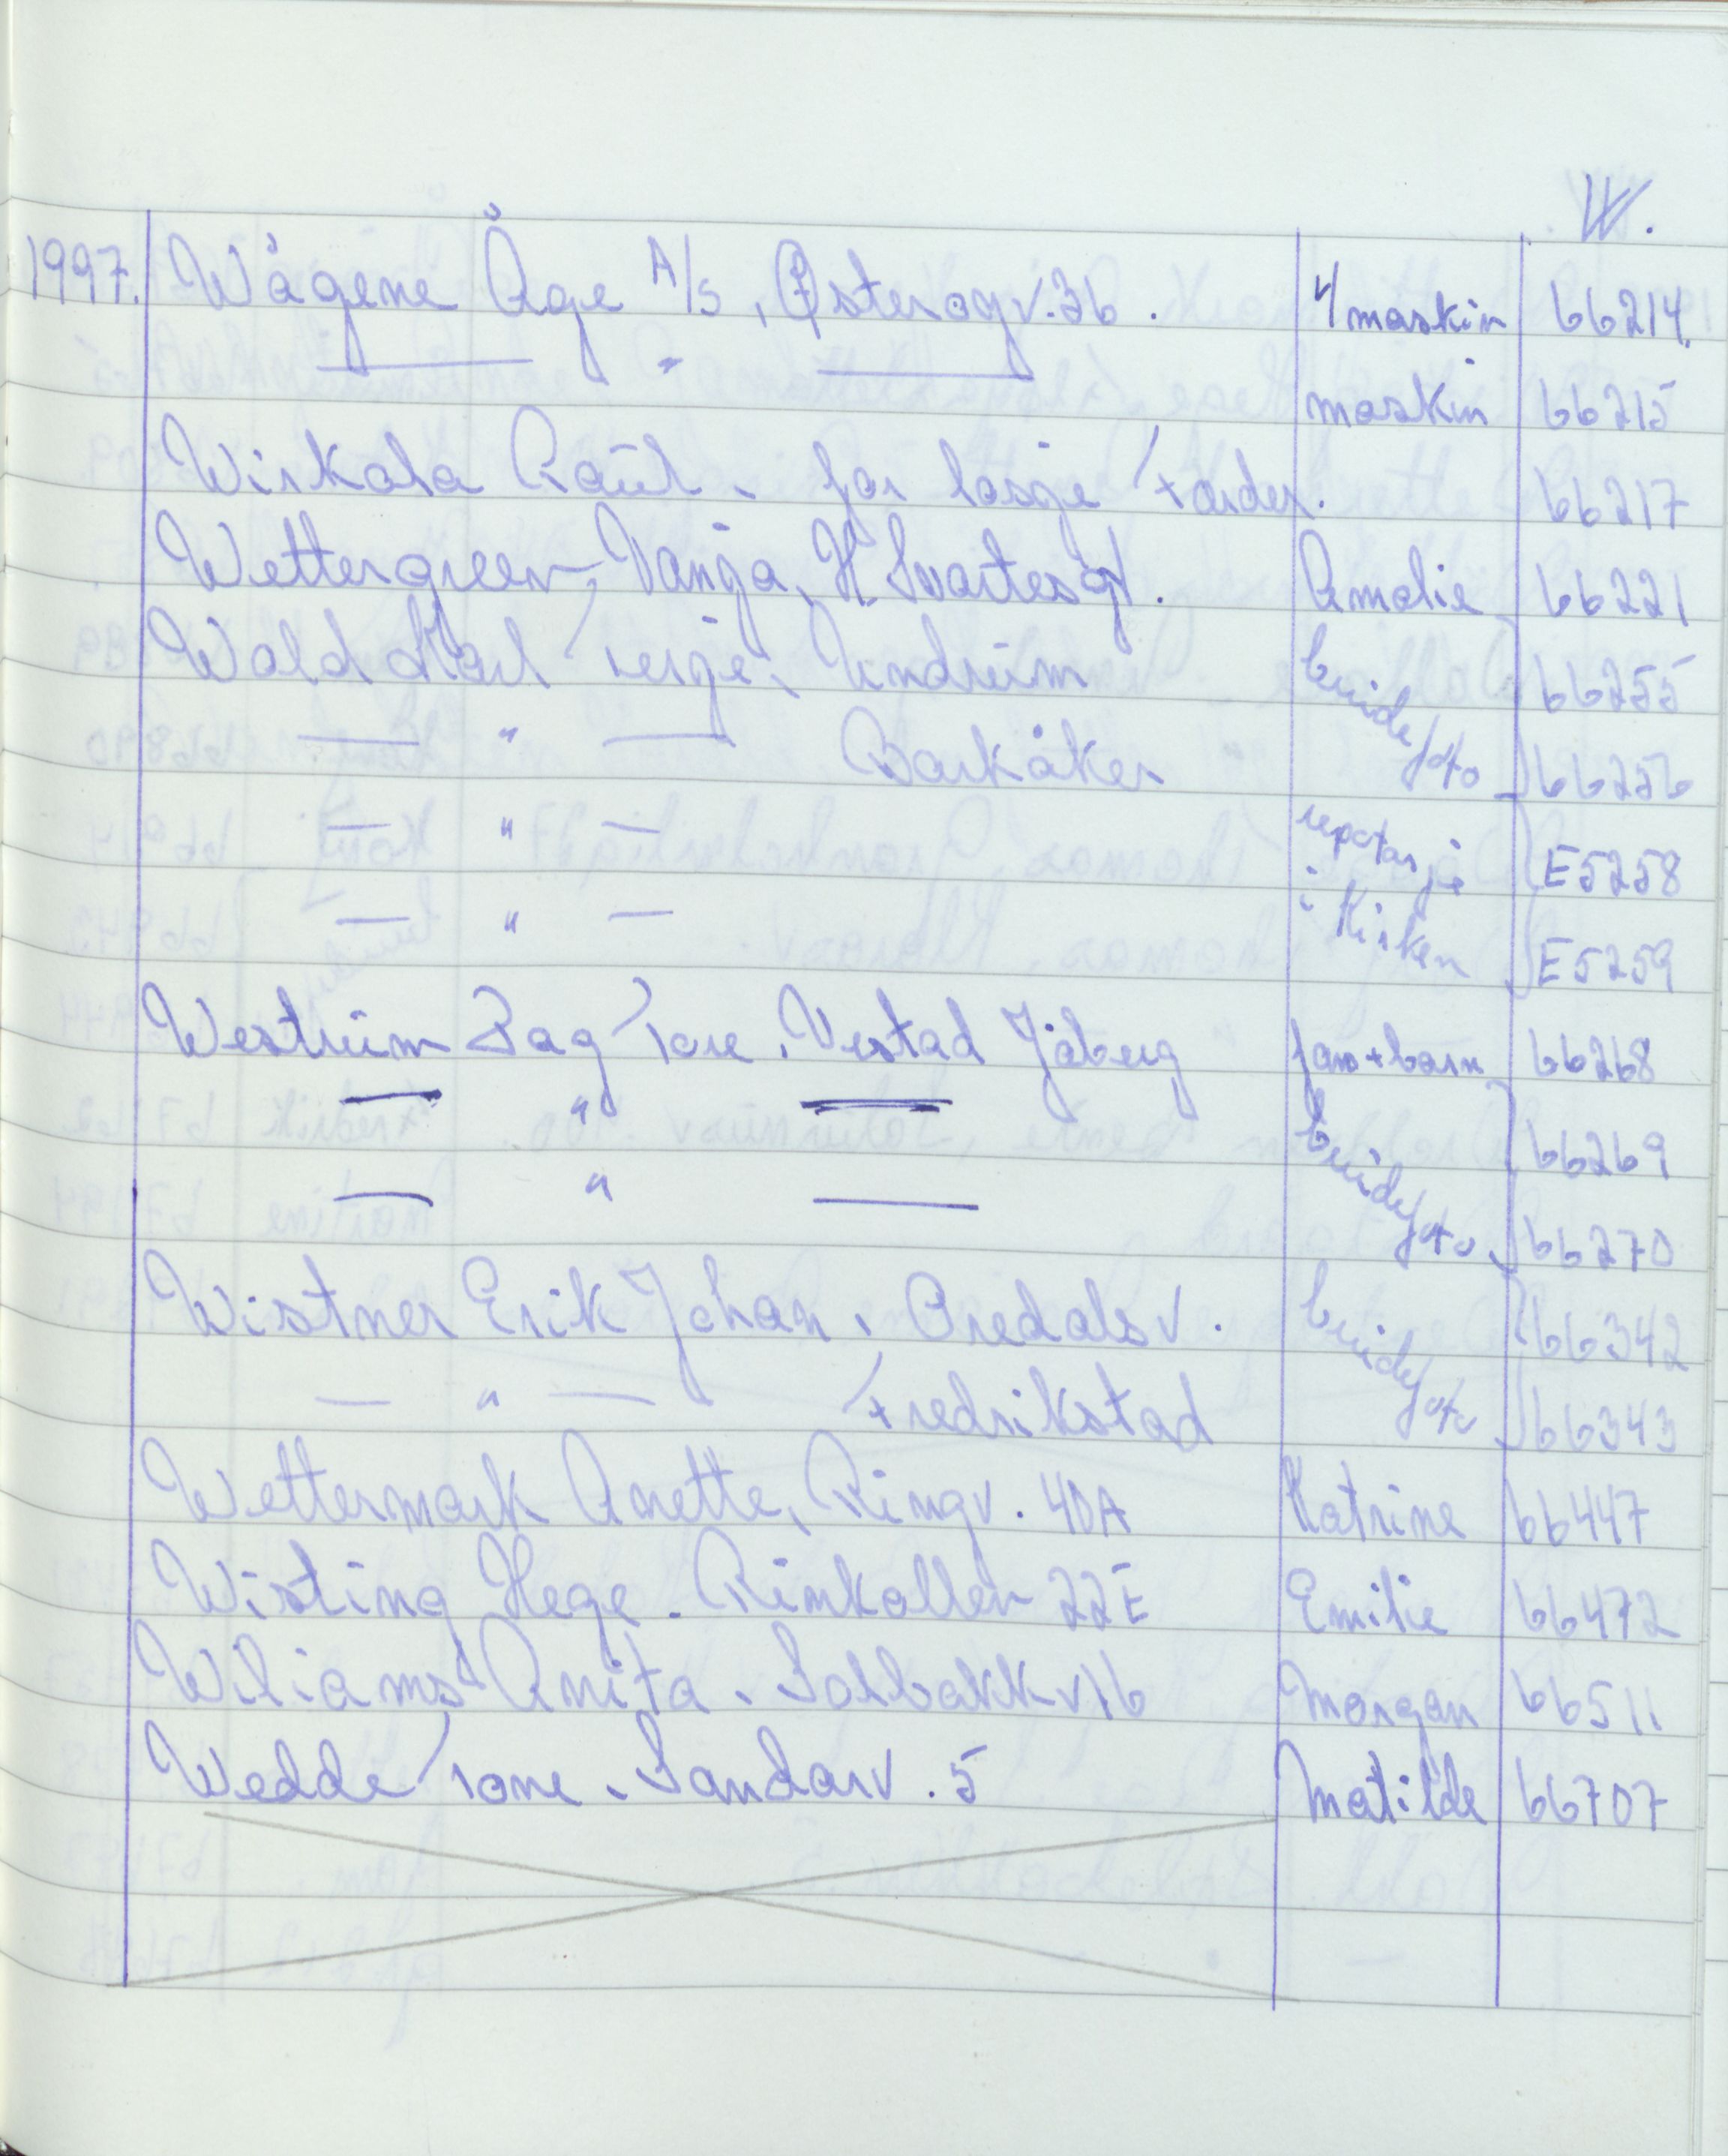 W.
1997. Wågene Åge A/S, Østerøyv. 36. 4 maskin 66214.
— " — maskin 66215
Wirkola Raúl. for losje Færder. 66217
Wettergreen, Vanja, H Svartesgt. Amalie 66221
Wald Karl Terje, Undrum brudefoto 66255
— " — Barkåker 66256
— " — repotasje E5258
— " — i Kirken E5259
Westrúm Dag Tore. Vestad Jåberg fam + barn 66268
— " — brúdefoto 66269
— " — 66270
Wistner Erik Johan, Bredalsv. brúdefoto 66342
— " — Fredrikstad 66343
Wettermark Anette, Ringv. 40A Katrine 66447
Wisting Hege. Rimkollen 22E Emilie 66472
Wiliams Anita. Solbakk-v 16 Morgan 66511
Wedde Tone. Sandarv. 5 Matilde 66707